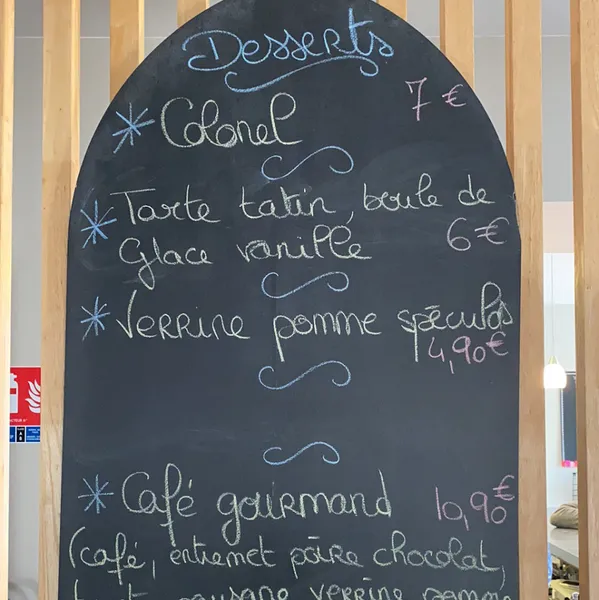 Desserts
* Colonel 7 €
* Tarte tatin, boule de
Glace vanille 6 €
* Verrine pomme spéculos
4,90€
* Café gourmand 10,90€
(café, entremet poire chocolat,
verrine pomme